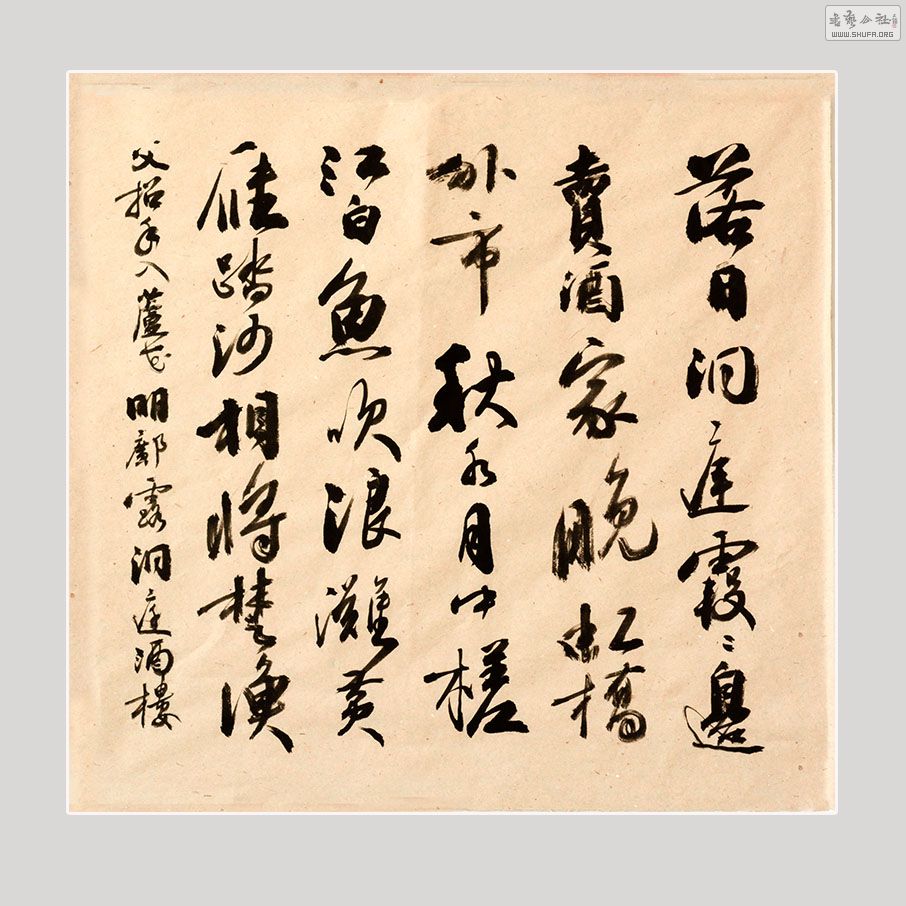 落日洞庭霞霞邊
賣酒家晚虹橋
外市秋水月中槎
江白魚吹浪灘黄
雁踏沙相將楚漁
父招手入蘆花明鄺露洞庭酒樓
書藝公社
WWW.SHUFA.ORG